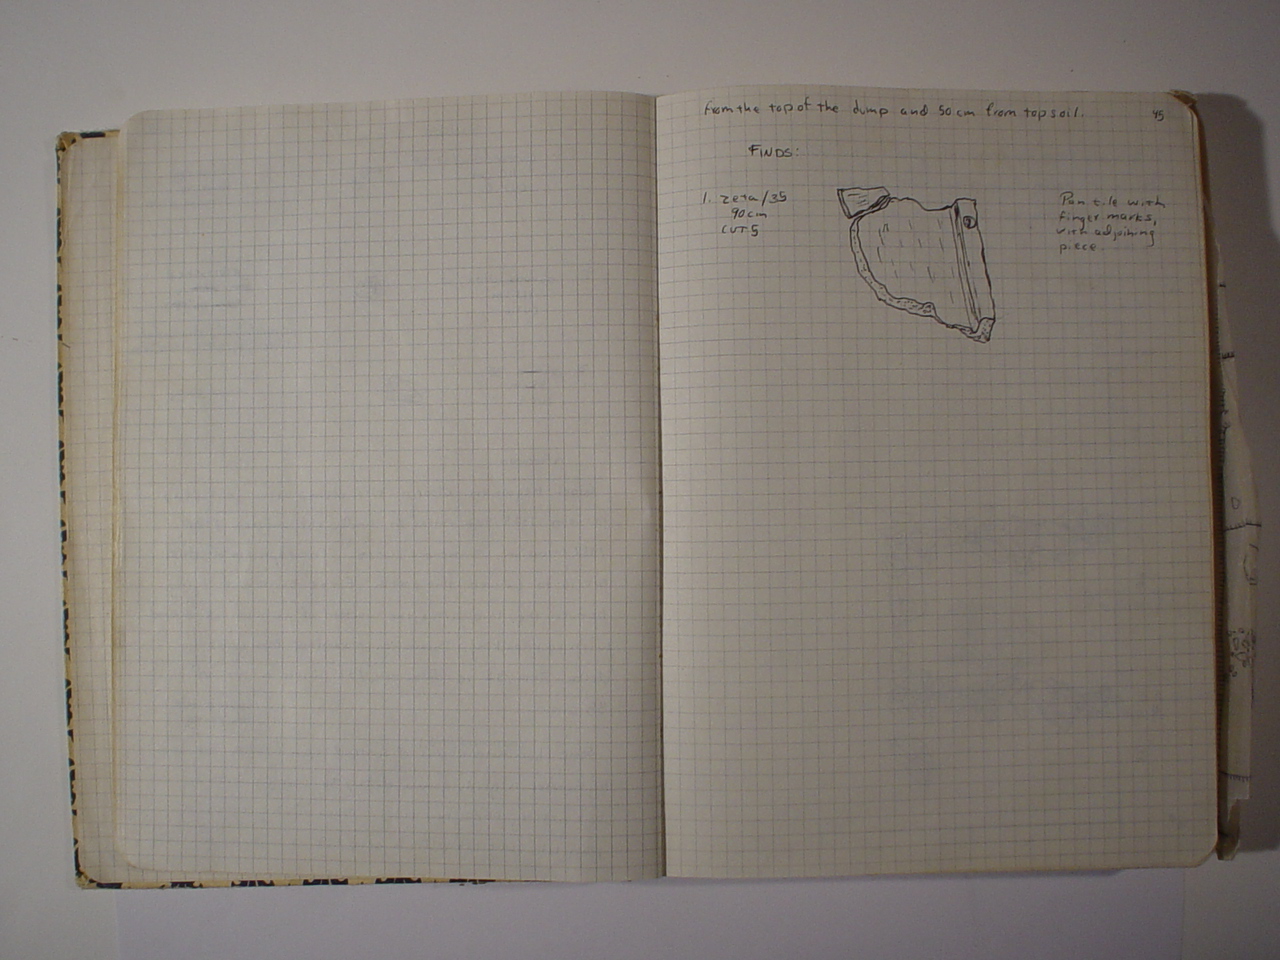 from the top of the dump and 50 cm from topsoil.
45
FINDS:
1. zeta/35
90 cm
CUT 5
Pan tile with
finger marks,
with adjoining
piece.